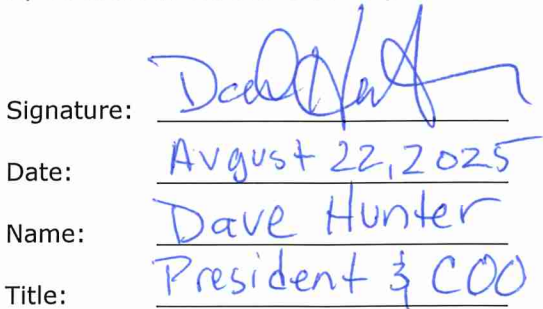 Signature:
Date: August 22, 2025
Name: Dave Hunter
Title: President & COO